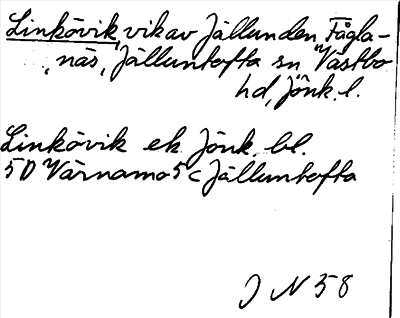 Linkövik, vik av Jällunden, Fågla-
näs, Jälluntofta sn Västbo
hd, Jönk. l.
Linkövik ek Jönk. bl.
5D Värnamo 5c Jälluntofta
J N 58